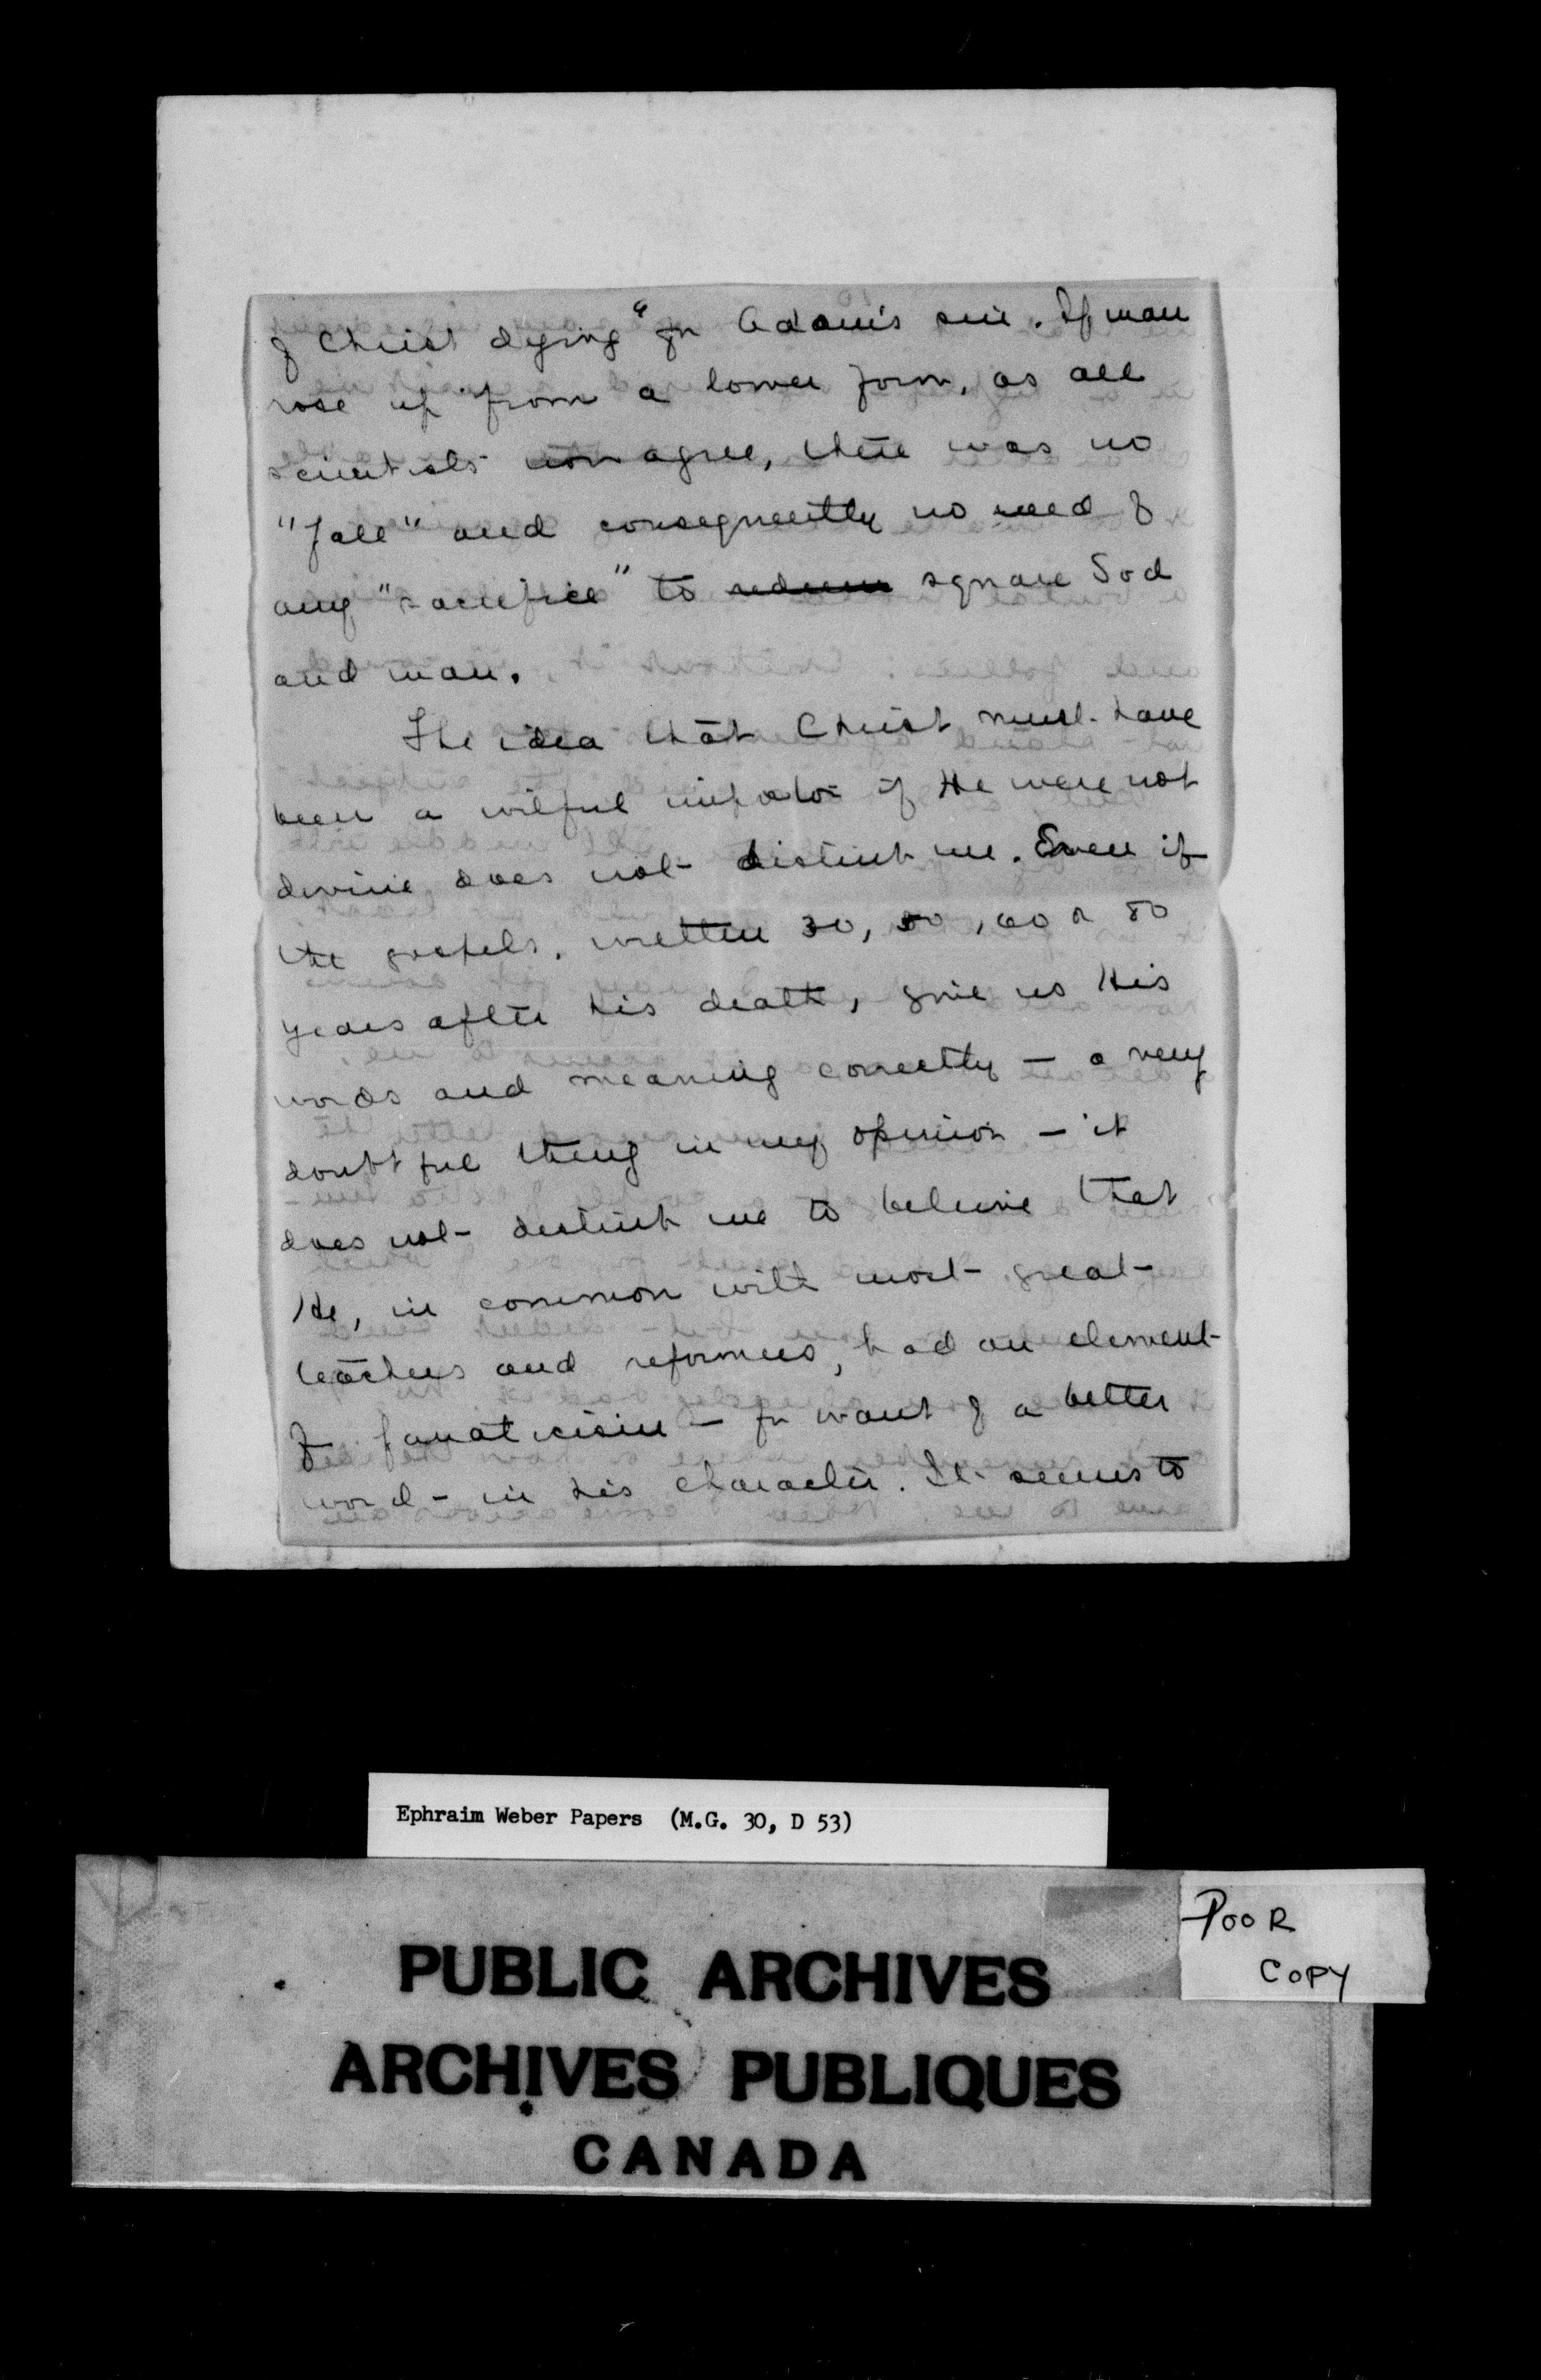 of Christ dying "for Adam's sin. If man
rose up from a lower form, as all
scientists now agree, there was no
"fall" and consequently no need of
any "sacrifice" to redeem square God
and man.
The idea that Christ must have
been a wilful impostor if He were not
divine does not disturb me. Even if
the gospels, written 30, 50, 60 or 80
years after his death, give us His
words and meaning correctly — a very
doubtful thing in my opinion — it
does not disturb me to believe that
He, in common with most great
teachers and reformers, had an element
of fanaticism — for want of a better
word — in his character. It seems to
Ephraim Weber Papers (M.G. 30, D 53)
POOR
COPY
PUBLIC ARCHIVES
ARCHIVES PUBLIQUES
CANADA